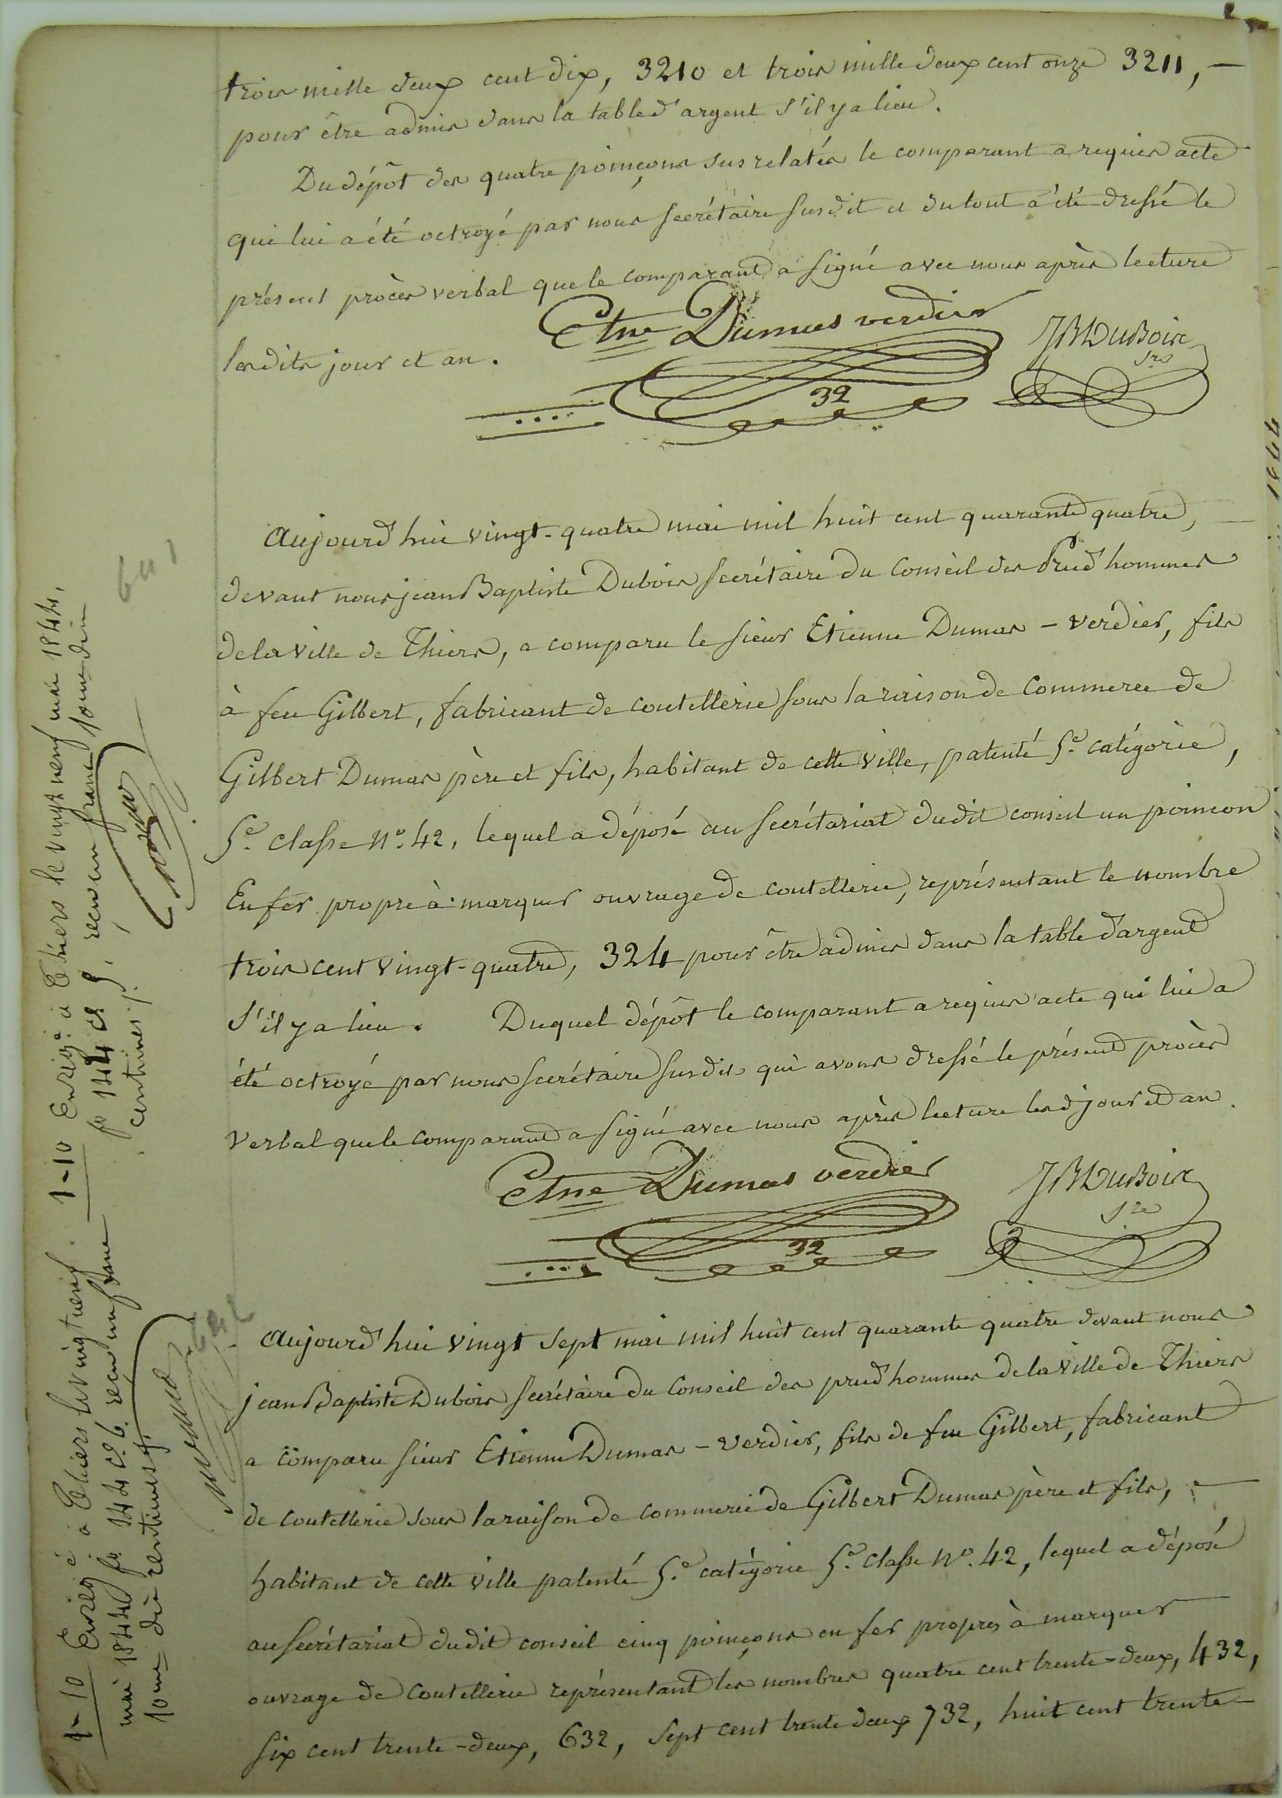 trois mille deux cent dix, 3210 et trois mille deux cent onze 3211, —
pour être admis dans la table d'argent s'il y a lieu.
Du dépôt des quatre poinçons susrelatés le comparant a requis acte
qui lui a été octroyé par nous secrétaire susdit et du tout a été dressé le
présent procès verbal que le comparant a signé avec nous après lecture
lesdits jour et an.
Etne Dumas verdier
JB Dubois
Sre
32
Aujourd'hui vingt-quatre mai mil huit cent quarante quatre, —
devant nous jean Baptiste Dubois secrétaire du Conseil des Prud'hommes
de la ville de Thiers, a comparu le sieur Etienne Dumas - Verdier, fils
à feu Gilbert, fabricant de coutellerie sous la raison de Commerce de
Gilbert Dumas père et fils, habitant de cette ville, patenté 5e catégorie,
5e classe No. 42, lequel a déposé au secrétariat dudit conseil un poinçon
En fer propre à marquer ouvrage de coutellerie, représentant le nombre
trois cent vingt-quatre, 324 pour être admis dans la table d'argent
s'il y a lieu. Duquel dépôt le comparant a requis acte qui lui a
été octroyé par nous secrétaire susdit qui avons dressé le présent procès
verbal que le comparant a signé avec nous après lecture lesd jour et an.
Etne Dumas verdier
JB Dubois
Sre
32
Aujourd'hui vingt sept mai mil huit cent quarante quatre devant nous
jean Baptiste Dubois secrétaire du Conseil des prud'hommes de la ville de Thiers
a comparu sieur Etienne Dumas - Verdier, fils de feu Gilbert, fabricant
de coutellerie sous la raison de commerce de Gilbert Dumas père et fils, —
habitant de cette ville patenté 5e catégorie 5e classe No. 42, lequel a déposé
au secrétariat dudit conseil cinq poinçons en fer propres à marquer
ouvrage de coutellerie représentant les nombres quatre cent trente-deux, 432,
six cent trente-deux, 632, sept cent trente deux 732, huit cent trente-
641
1-10 Enregé à Thiers le vingt neuf mai 1844,
fo 144 cs 5, reçu un franc 10me dix
centimes
642
1-10 Enregé à Thiers le vingt neuf
mai 1844 fo 144 cs 6. reçu un franc
10me dix centimes